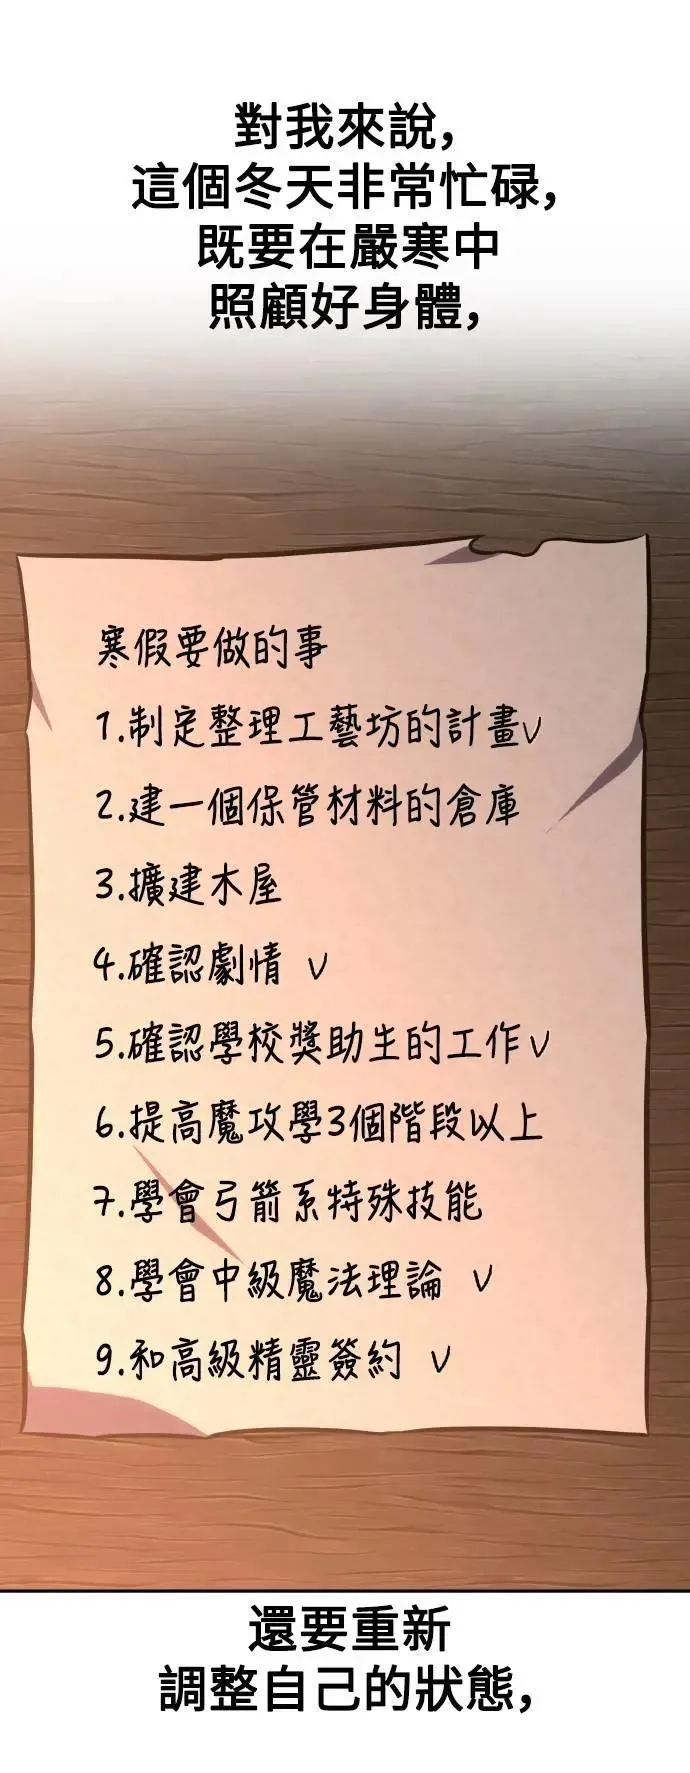 對我來說,
這個冬天非常忙碌,
既要在嚴寒中
照顧好身體,
寒假要做的事
1.制定整理工藝坊的計畫∨
2.建一個保管材料的倉庫
3.擴建木屋
4.確認劇情 ∨
5.確認學校獎助生的工作∨
6.提高魔攻學3個階段以上
7.學會弓箭系特殊技能
8.學會中級魔法理論 ∨
9.和高級精靈簽約 ∨
還要重新
調整自己的狀態,